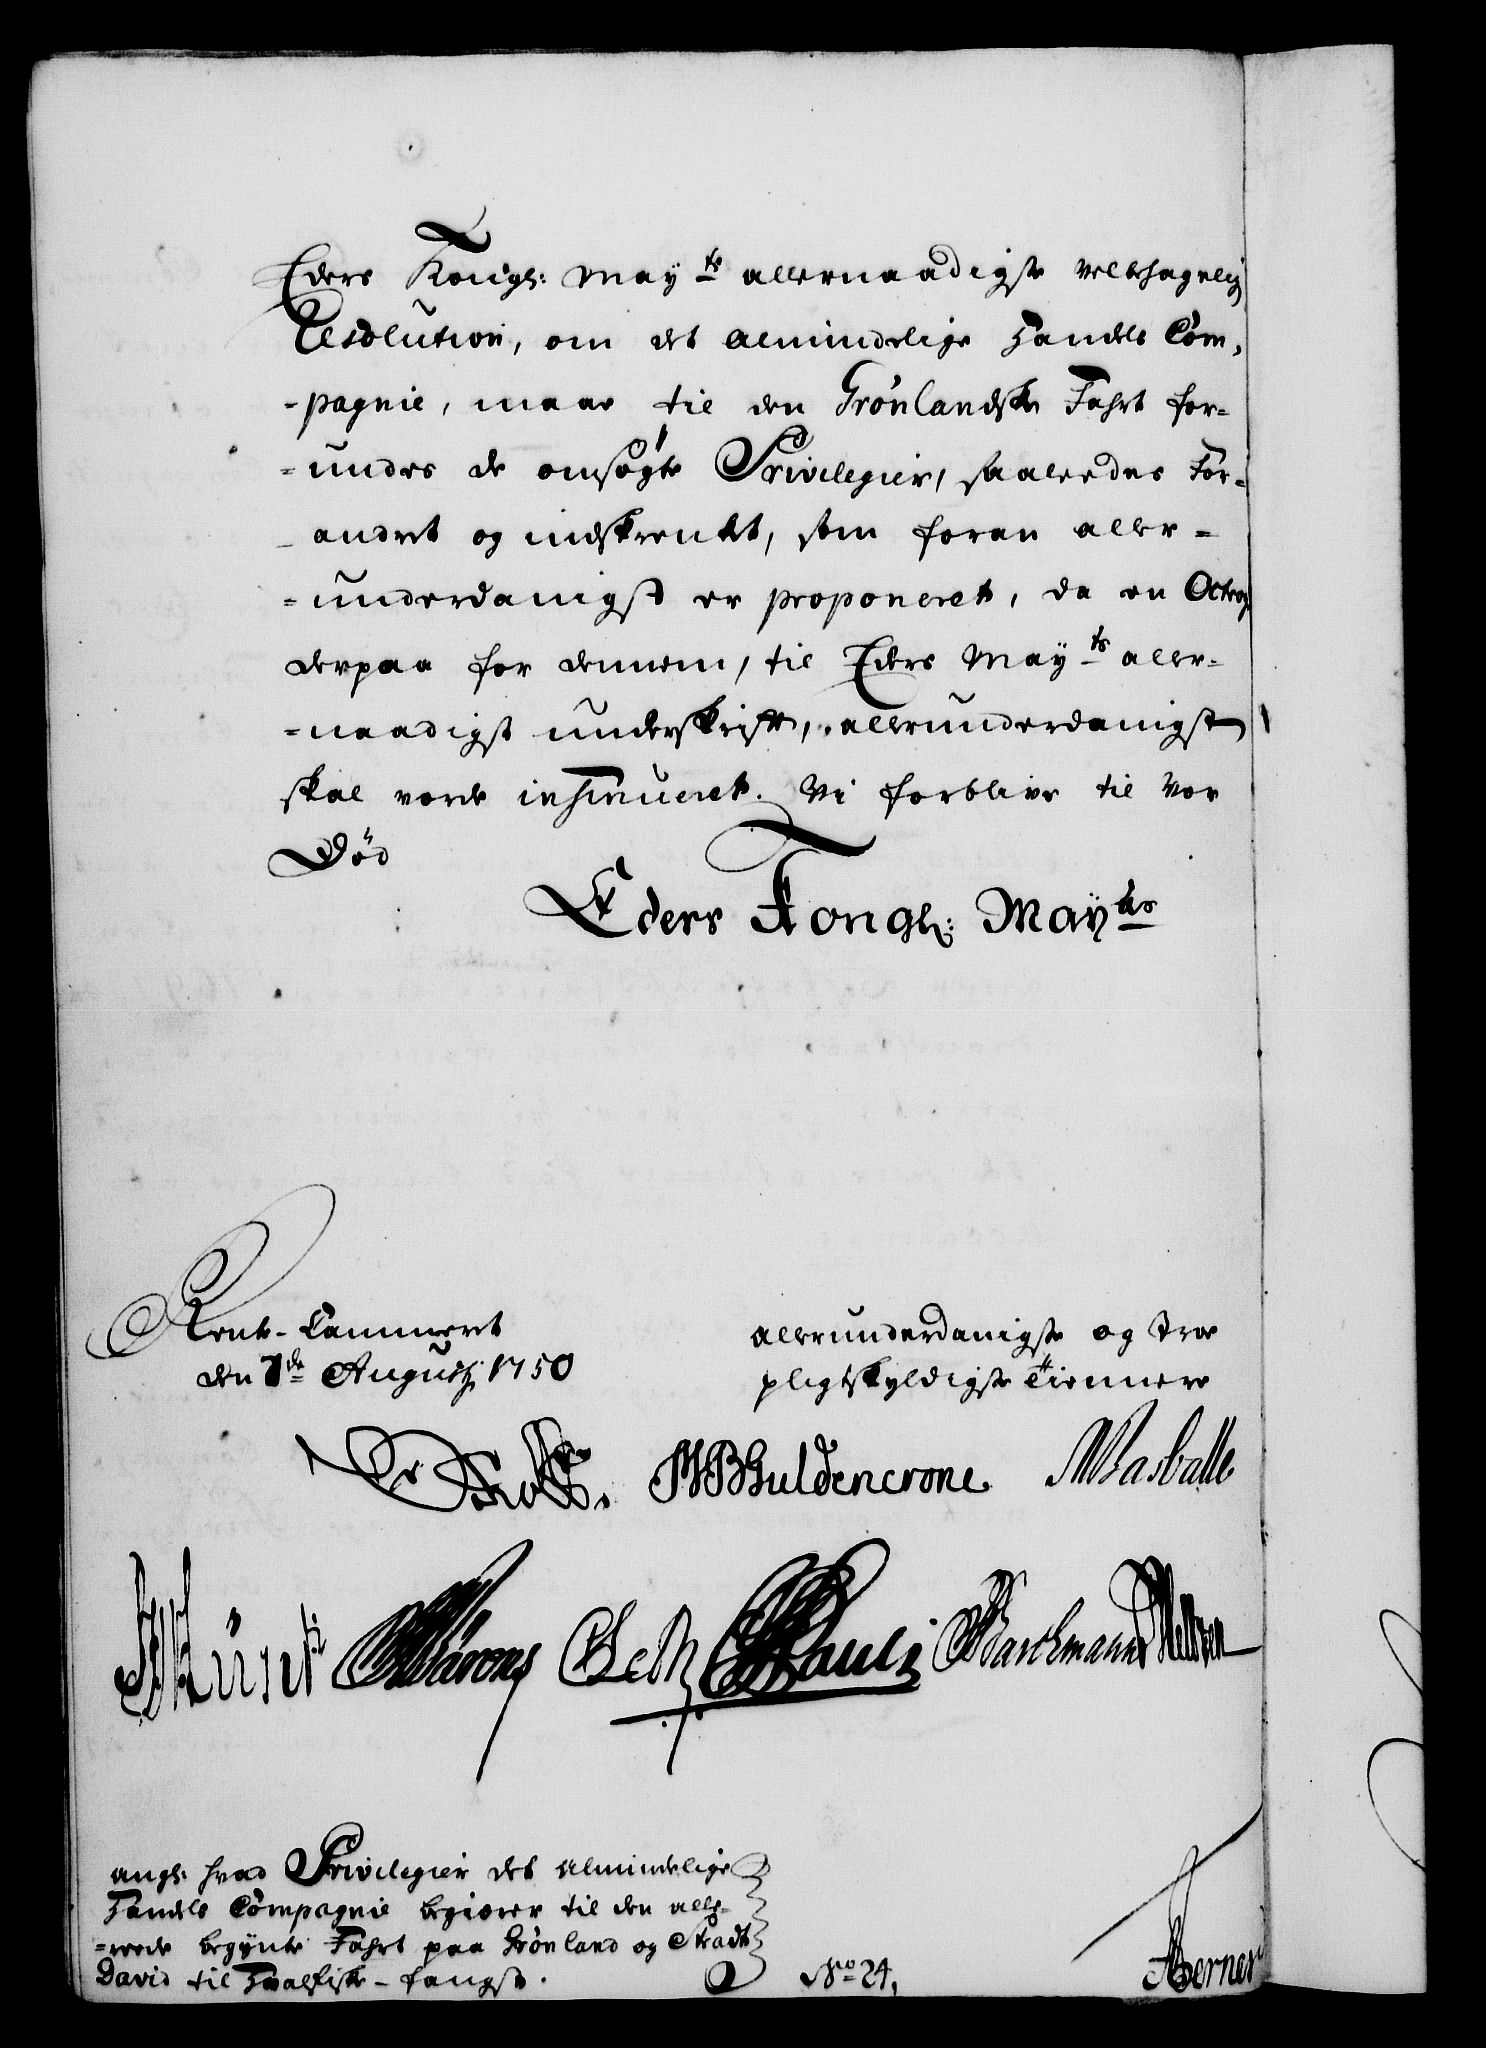 Eders Kongl: May<sup>ts</sup> allernaadigste velbehagelig
Resolution, om det almindelige Handels Com,
-pagnie, maae til den Grönlandske Fahrt for-
-undes de omsögte Privilegier, saaledes For-
-andret og indskrenket, som foran aller-
-underdanigst er proponeret, da en Octroy
derpaa for dennem, til Eders May<sup>ts</sup> aller-
-naadigst underskrift, allerunderdanigst
skal vorde insinueret. Vi forblive til vor
Död
Eders Kongl: May<sup>ts</sup>
Rente-Cammeret
den 1<sup>de</sup> Augusti 1750
allerunderdanigste og troe
pligtskyldigste Tiennere
MBGuldencrone
Basballe
Pauli
Barchmann
angl: hvad Privilegier det almindelige
Handels Compagnie begiærer til den alle-
-rede begynte Fahrt paa Grönland og Stradt
David til Hvalfiske-fangst.
No 24.
Berner